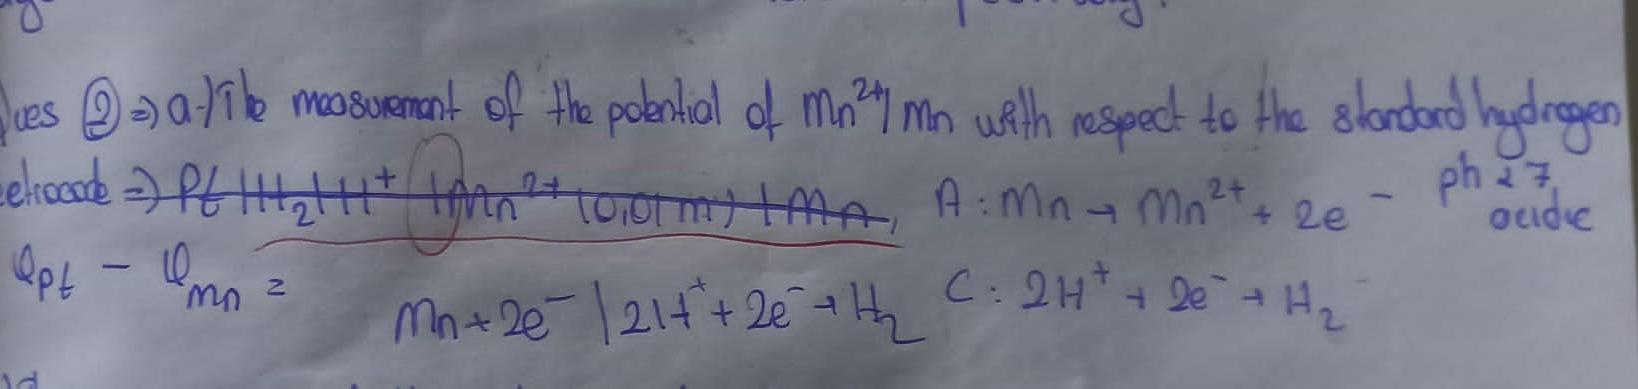 ues ② ⇒ a-) The measurement of the potential of Mn²⁺/Mn with respect to the standard hydrogen
elrocode ⇒ Pt|H₂|H⁺|Mn²⁺(0,01m)|Mn, A: Mn → Mn²⁺ + 2e⁻ ph < 7, acidic
φPt - φMn = Mn + 2e⁻ | 2H⁺ + 2e⁻ → H₂ C: 2H⁺ + 2e⁻ → H₂